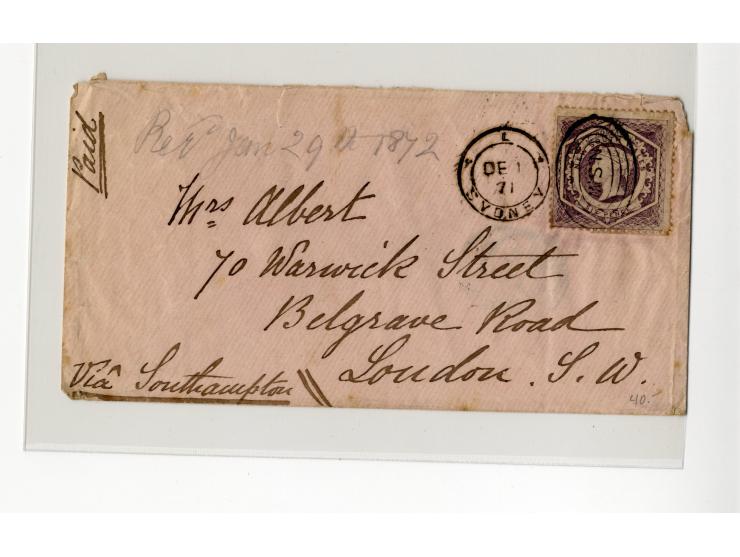 Paid
Recd Jan 29th 1872
L
DE 1
71
SYDNEY
NSW
Mrs Albert
70 Warwick Street
Belgrave Road
London. S. W.
Viâ Southampton
40.-